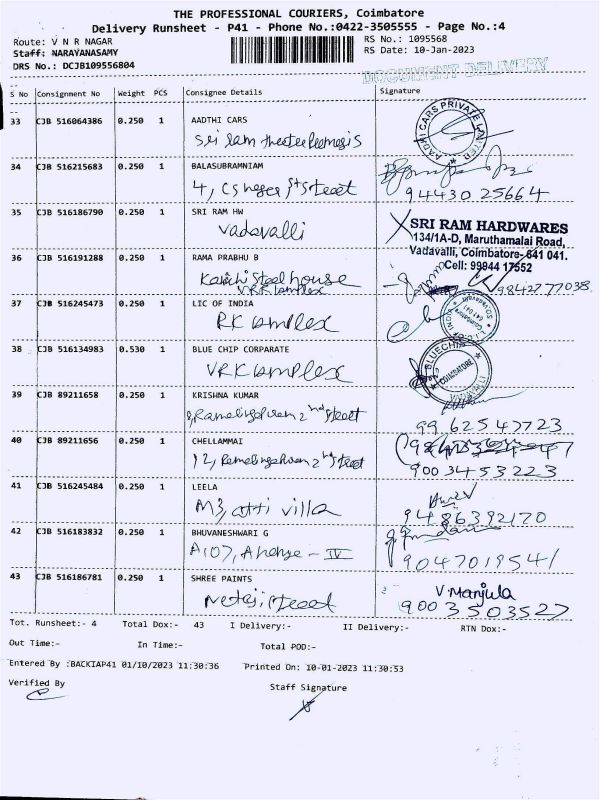 THE PROFESSIONAL COURIERS, Coimbatore
Delivery Runsheet - P41 - Phone No.:0422-3505555 - Page No.:4
Route: V N R NAGAR
RS No.: 1095568
Staff: NARAYANASAMY
RS Date: 10-Jan-2023
DRS No.: DCJB109556804
DOCUMENT DELIVERY
S No Consignment No Weight PCS Consignee Details Signature
33 CJB 516064386 0.250 1 AADTHI CARS
AADHI CARS PRIVATE
Sri Ram theatre
34 CJB 516215683 0.250 1 BALASUBRAMNIAM
4, CS nagar 1st Street
94430 25664
35 CJB 516186790 0.250 1 SRI RAM HW
Vadavalli
SRI RAM HARDWARES
134/1A-D, Maruthamalai Road,
Vadavalli, Coimbatore-641 041.
Cell: 99944 17552
36 CJB 516191288 0.250 1 RAMA PRABHU B
Kanchi Steel house
VRK Complex
9842777038
37 CJB 516245473 0.250 1 LIC OF INDIA
RK Complex
38 CJB 516134983 0.530 1 BLUE CHIP CORPARATE
VRK Complex
BLUECHIP
COIMBATORE
39 CJB 89211658 0.250 1 KRISHNA KUMAR
2nd Street
99625 47723
40 CJB 89211656 0.250 1 CHELLAMMAI
12, 2nd Street
9003453223
41 CJB 516245484 0.250 1 LEELA
M3, atti villa
9486392170
42 CJB 516183832 0.250 1 BHUVANESHWARI G
A107, - IV
9047019541
43 CJB 516186781 0.250 1 SHREE PAINTS
Netaji Street
V Manjula
9003503527
Tot. Runsheet:- 4 Total Dox:- 43 I Delivery:- II Delivery:- RTN Dox:-
Out Time:- In Time:- Total POD:-
Entered By :BACKIAP41 01/10/2023 11:30:36 Printed On: 10-01-2023 11:30:53
Verified By
Staff Signature